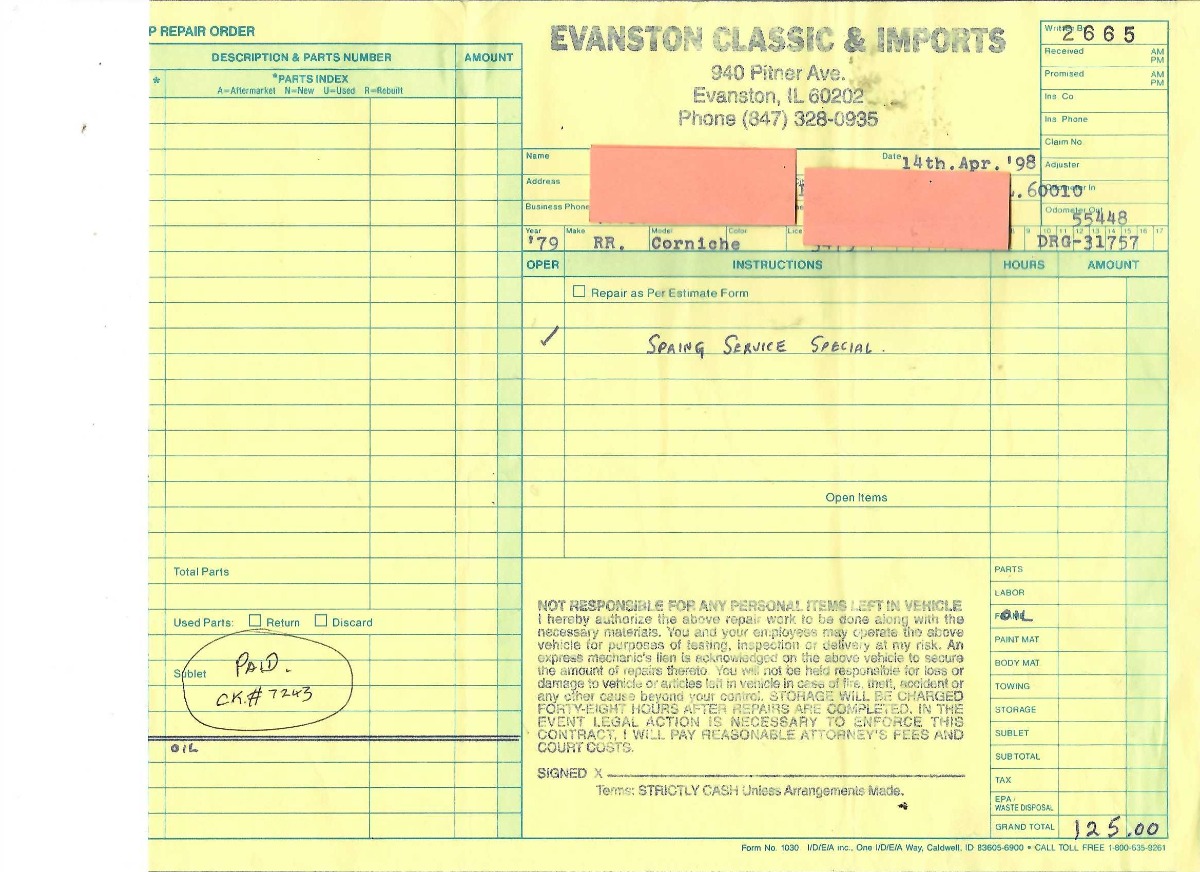 P REPAIR ORDER
DESCRIPTION & PARTS NUMBER AMOUNT
* *PARTS INDEX
A=Aftermarket N=New U=Used R=Rebuilt
EVANSTON CLASSIC & IMPORTS
940 Pitner Ave.
Evanston, IL 60202
Phone (847) 328-0935
2665
Received AM PM
Promised AM PM
Ins. Co
Ins. Phone
Claim No
Adjuster
Odometer In
Odometer Out
55448
Name
Date 14th.Apr.'98
Address
60010
Business Phone
Year Make Model Color
'79 RR. Corniche
9 10 11 12 13 14 15 16 17
DRG-31757
OPER INSTRUCTIONS HOURS AMOUNT
Repair as Per Estimate Form
✓ SPRING SERVICE SPECIAL.
Open Items
Total Parts
Used Parts: Return Discard
Sublet
PAID.
CK.# 7243
OIL
NOT RESPONSIBLE FOR ANY PERSONAL ITEMS LEFT IN VEHICLE
I hereby authorize the above repair work to be done along with the
necessary materials. You and your employees may operate the above
vehicle for purposes of testing, inspection or delivery at my risk. An
express mechanic's lien is acknowledged on the above vehicle to secure
the amount of repairs thereto. You will not be held responsible for loss or
damage to vehicle or articles left in vehicle in case of fire, theft, accident or
any other cause beyond your control. STORAGE WILL BE CHARGED
FORTY-EIGHT HOURS AFTER REPAIRS ARE COMPLETED. IN THE
EVENT LEGAL ACTION IS NECESSARY TO ENFORCE THIS
CONTRACT, I WILL PAY REASONABLE ATTORNEY'S FEES AND
COURT COSTS.
SIGNED X
Terms: STRICTLY CASH Unless Arrangements Made.
PARTS
LABOR
OIL
PAINT MAT
BODY MAT
TOWING
STORAGE
SUBLET
SUB TOTAL
TAX
EPA/
WASTE DISPOSAL
GRAND TOTAL 125.00
Form No. 1030 I/D/E/A inc., One I/D/E/A Way, Caldwell, ID 83605-6900 • CALL TOLL FREE 1-800-635-9261